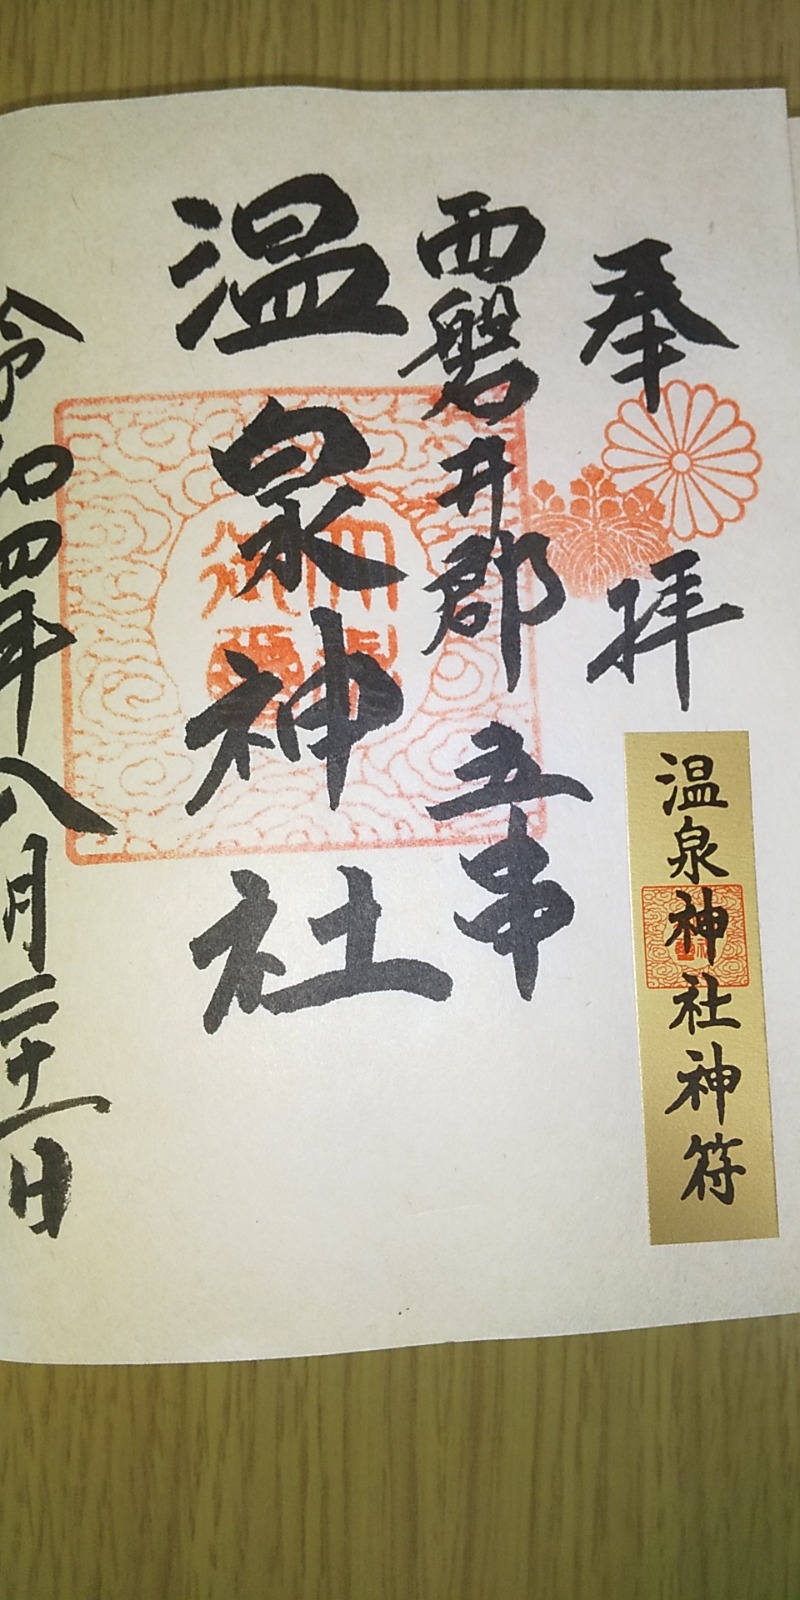 奉拝
西磐井郡 五串
温泉神社
令和四年八月二十一日
温泉神社神符